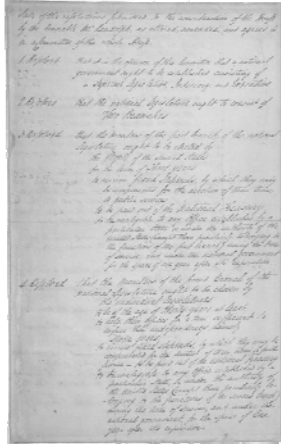 State of the resolutions submitted to the consideration of the House
by the honorable Mr. Randolph, as altered, amended, and agreed to
in a Committee of the whole House.
1. Resolved that it is the opinion of this Committee that a national
government ought to be established consisting of
a Supreme Legislative, Judiciary, and Executive.
2. Resolved that the national Legislature ought to consist of
Two Branches.
3. Resolved that the members of the first branch of the national
Legislature ought to be elected by
the People of the several States
for the term of Three years
to receive fixed stipends, by which they may
be compensated for the devotion of their time
to public service
to be paid out of the National Treasury.
to be ineligible to any Office established by a
particular State or under the authority of the
United States (except those peculiarly belonging to
the functions of the first branch) during the term
of service, and under the national government
for the space of one year after its expiration.
4. Resolved that the members of the second Branch of the
national Legislature ought to be chosen by
the individual Legislatures.
to be of the age of thirty years at least.
to hold their offices for a term sufficient to
ensure their independency, namely
seven years.
to receive fixed stipends, by which they may be
compensated for the devotion of their time to public
service — to be paid out of the National Treasury
to be ineligible to any Office established by a
particular State, or under the authority of
the United States (except those peculiarly be-
longing to the functions of the second branch)
during the term of service, and under the
national government, for the space of One
year after its expiration.